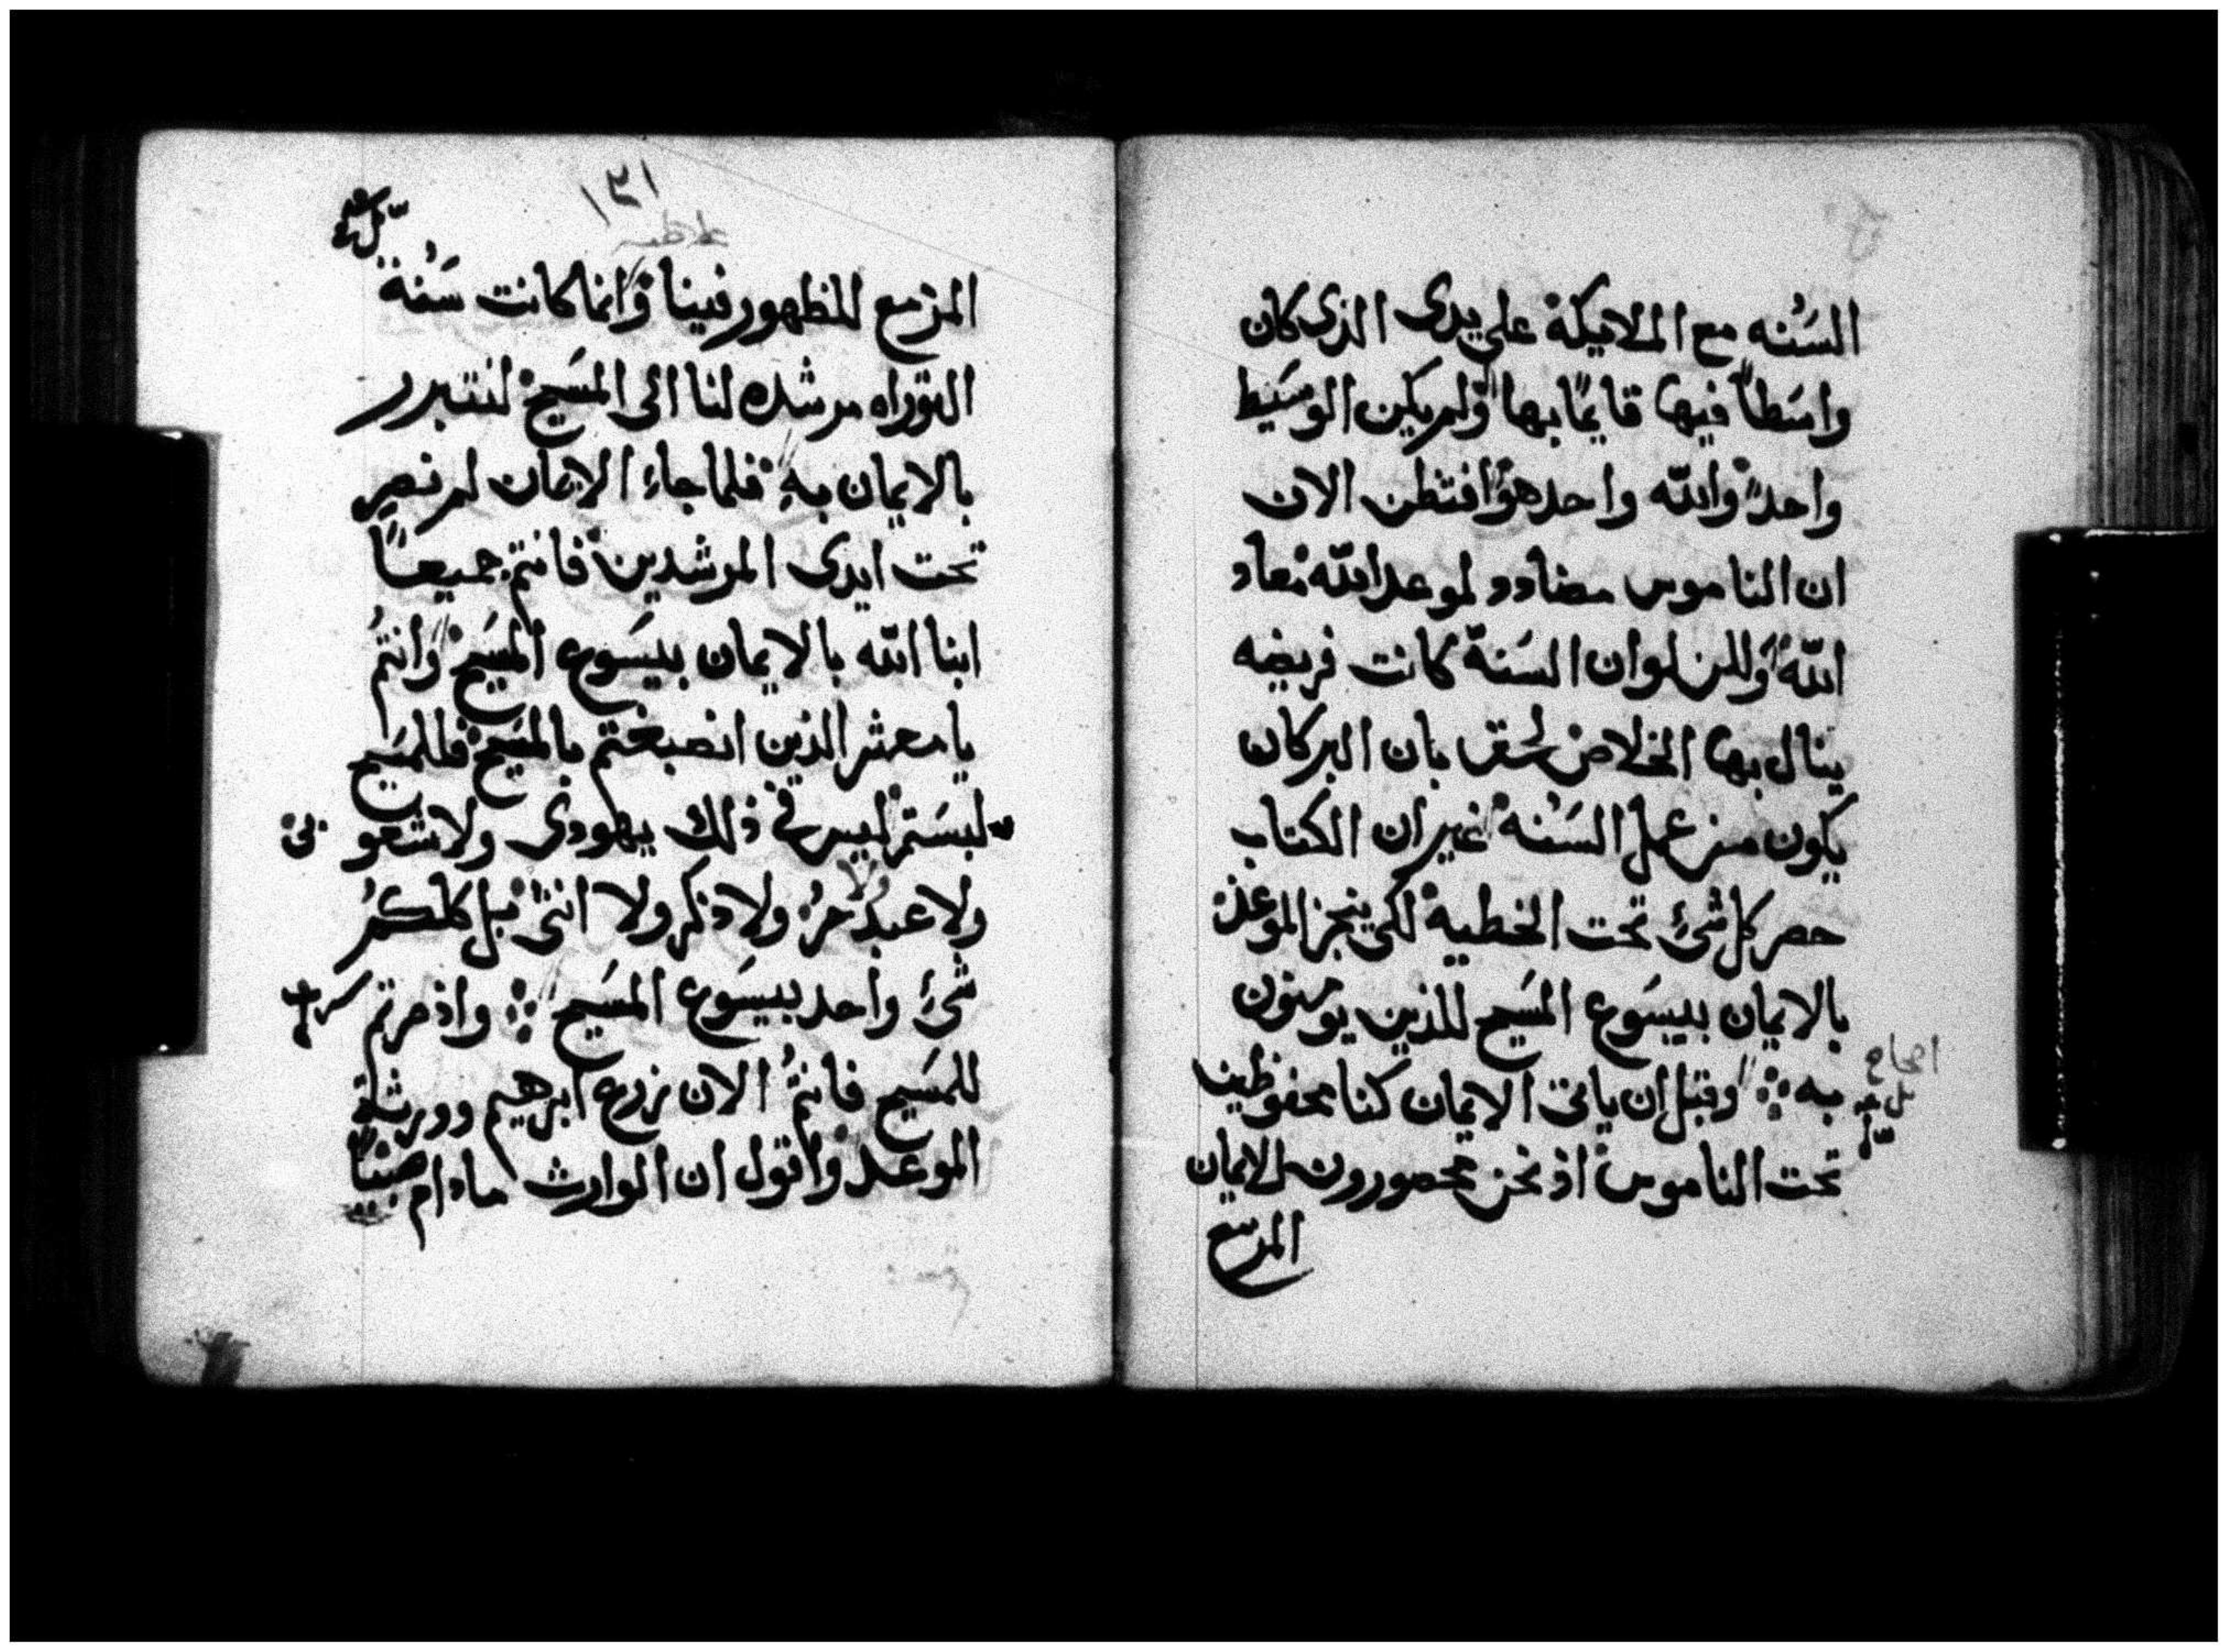 السَنه مع الملايكة على يدى الذى كان
واسَطاً فيها قايمًا بها ولم يكن الوسَيط
واحداً والله واحد هو افتظن الان
ان الناموس مضادد لموعد الله معاد
الله ولكن لو ان السَنة كانت فريضه
ينال بها الخلاص لحق بان البر كان
يكون من عمل السَنه غير ان الكتاب
حصر كل شئ تحت الخطية لكى ينجز الموعد
بالايمان بيسَوع المسَيح للذين يومنون
به وقبل ان ياتى الايمان كنا محفوظين
تحت الناموس اذ نحن محصورون للايمان
المزمع
١٣١
غلاطيه
المزمع للظهور فينا وانما كانت سَنة
التوراه مرشده لنا الى المسَيح لنتبرر
بالايمان به فلما جاء الايمان لم نصر
تحت ايدى المرشدين فانتم جميعاً
ابنا الله بالايمان بيسَوع المسَيح وانتم
يا معشر الذين انصبغتم بالمسَيح فللمسَيح
لبسَتم ليس فى ذلك يهودى ولا شعو بى
ولا عبدُ ولا حرُ ولا ذكر ولا انثى بل كلكم
شئ واحد بيسَوع المسَيح واذ صرتم
للمسَيح فانتم الان زرع ابرهيم وورثة
الموعد واقول ان الوارث مادام صبيًا